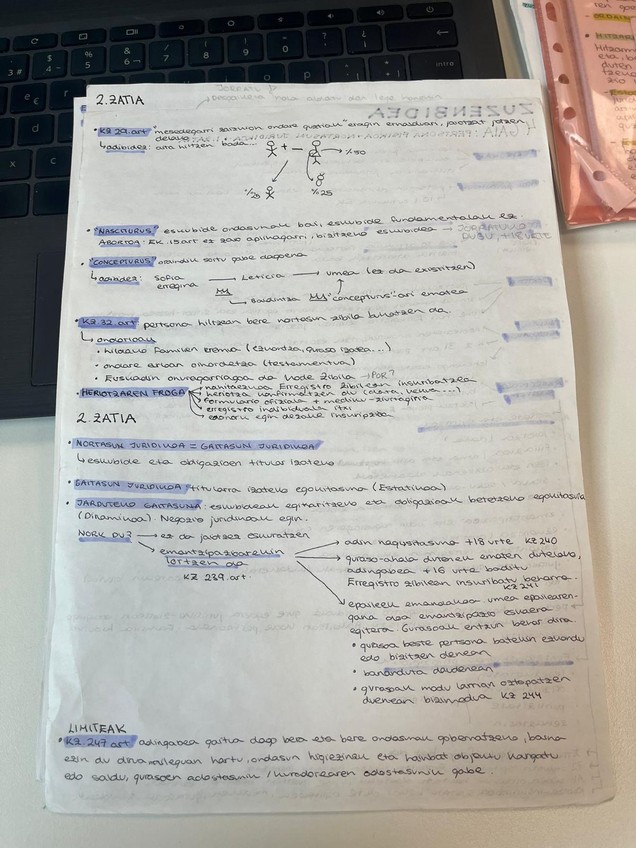 2. ZATIA
• KZ 29. art "mesedegarri zaizkion ondore guztiak" eragin ematuan, jaiotzat jotzen
delako
↳ adibidez: aita hiltzen bada...
+ —
→ %50
%25
%25
• "NASCITURUS" eskubide ondasunak bai, eskubide fundamentalak ez.
ABORTOA: EK. 15 art ez zao aplikagarri, bizitzeko eskubidea
• "CONCEPTURUS" oraindik sortu gabe dagoena
↳ adibidez: Sofia → Leticia → umea (ez da existitzen)
erregina
↳ Baldintza "concepturus"-ari ematea
• KZ 32. art pertsona hiltzean bere nortasun zibila bukatzen da.
↳ ondorioak
• hildako familien eremua (ezkontza, guraso izatea...)
• ondare arloan oinordetza (testamentua)
• Euskadin onuragarriagoa da Kode Zibila → POR?
HERIOTZAREN FROGA
heriotza konfirmatzen du (data, lekua....)
formulario ofiziala + mediku-ziurtagiria
erregistro indibiduala itxi
edonork egin dezake inskripzioa
2. ZATIA
• NORTASUN JURIDIKOA = GAITASUN JURIDIKOA
↳ eskubide eta obligazioen titular izateko
• GAITASUN JURIDIKOA: titularra izateko egokitasuna (Estatikoa)
• JARDUTEKO GAITASUNA: eskubideak egikaritzeko eta obligazioak betetzeko egokitasuna
(Dinamikoa). Negozio juridikoak egin.
NORK DU? → ez da jaiotzez eskuratzen
→ emantzipazioarekin
lortzen da
KZ 239. art.
→ adin nagusitasuna +18 urte KZ 240
→ guraso-ahala dutenek ematen dutelako,
adingabea +16 urte baditu
Erregistro zibilean inskribatu beharra.
KZ 241
→ epaileek emandakoa umea epailearen-
gana doa emantzipazio eskaera
egitera. Gurasoak entzun behar dira.
• gurasoa beste pertsona batekin ezkondu
edo bizitzen denean
• bananduta daudenean
• gurasoak modu larrian oztopatzen
duenean bizimodua KZ 244
LIMITEAK
• KZ 247 art adingabea gaitua dago bera eta bere ondasunak gobernatzeko, baina
ezin du dirua maileguan hartu, ondasun higiezinak eta hainbat objektu kargatu
edo saldu, gurasoen adostasunik / kuradorearen adostasunik gabe.